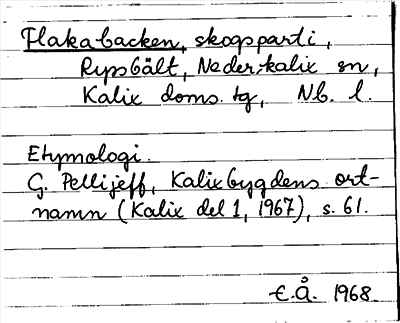 Flakabacken, skogsparti,
Rypsbält, Neder-kalix sn,
Kalix doms. tg, Nb. l.
Etymologi.
G. Pellijeff, Kalixbygdens ort-
namn (Kalix del 1, 1967), s. 61.
E.Å. 1968.